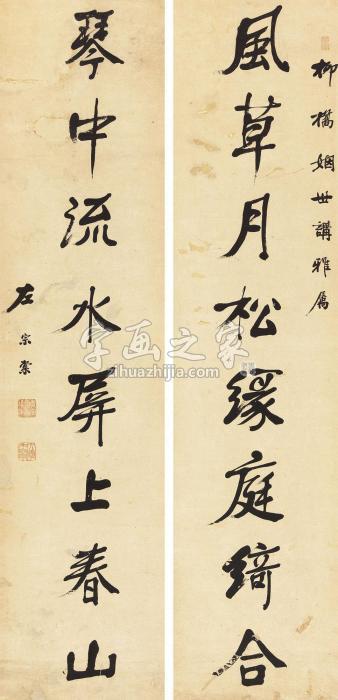 柳橋姻世講雅屬
風草月松緣庭錡合
琴中流水屏上春山
左宗棠
字画之家
zihuazhijia.com